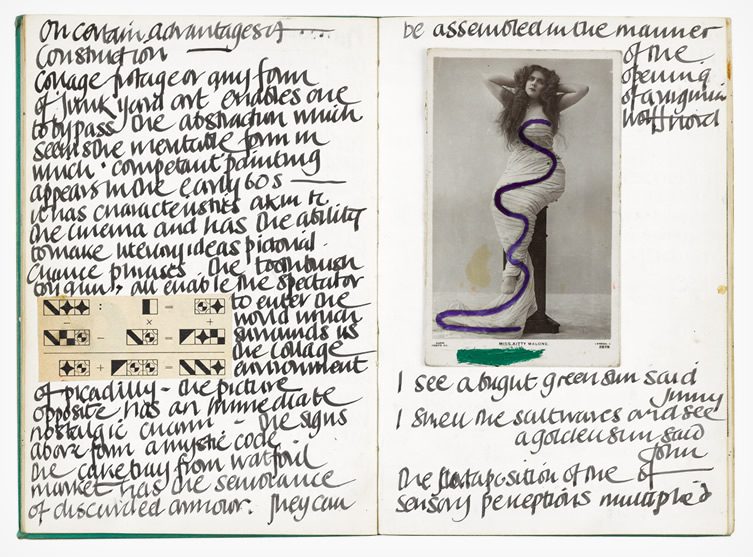 On certain advantages of ....
Construction —
Collage frottage or any form
of junk yard art enables one
to bypass the abstraction which
seems the inevitable form in
which competant painting
appears in the early 60s —
it has characteristics akin to
the cinema and has the ability
to make literary ideas pictorial.
Chance phrases the toothbrush
toy gun, all enable the spectator
to enter the
world which
surrounds us
the collage
environment
of picadilly - the picture
opposite has an immediate
nostalgic charm - the signs
above form a mystic code
the cake tray from watford
market has the semblance
of discarded armour. They can
be assembled in the manner
of the
opening
of a virginia
MISS KITTY MALONE.
I see a bright green sun said
Jimmy
I smell the saltwaves and see
a golden sun said
John
the juxtaposition of the of
sensory perceptions multiplied